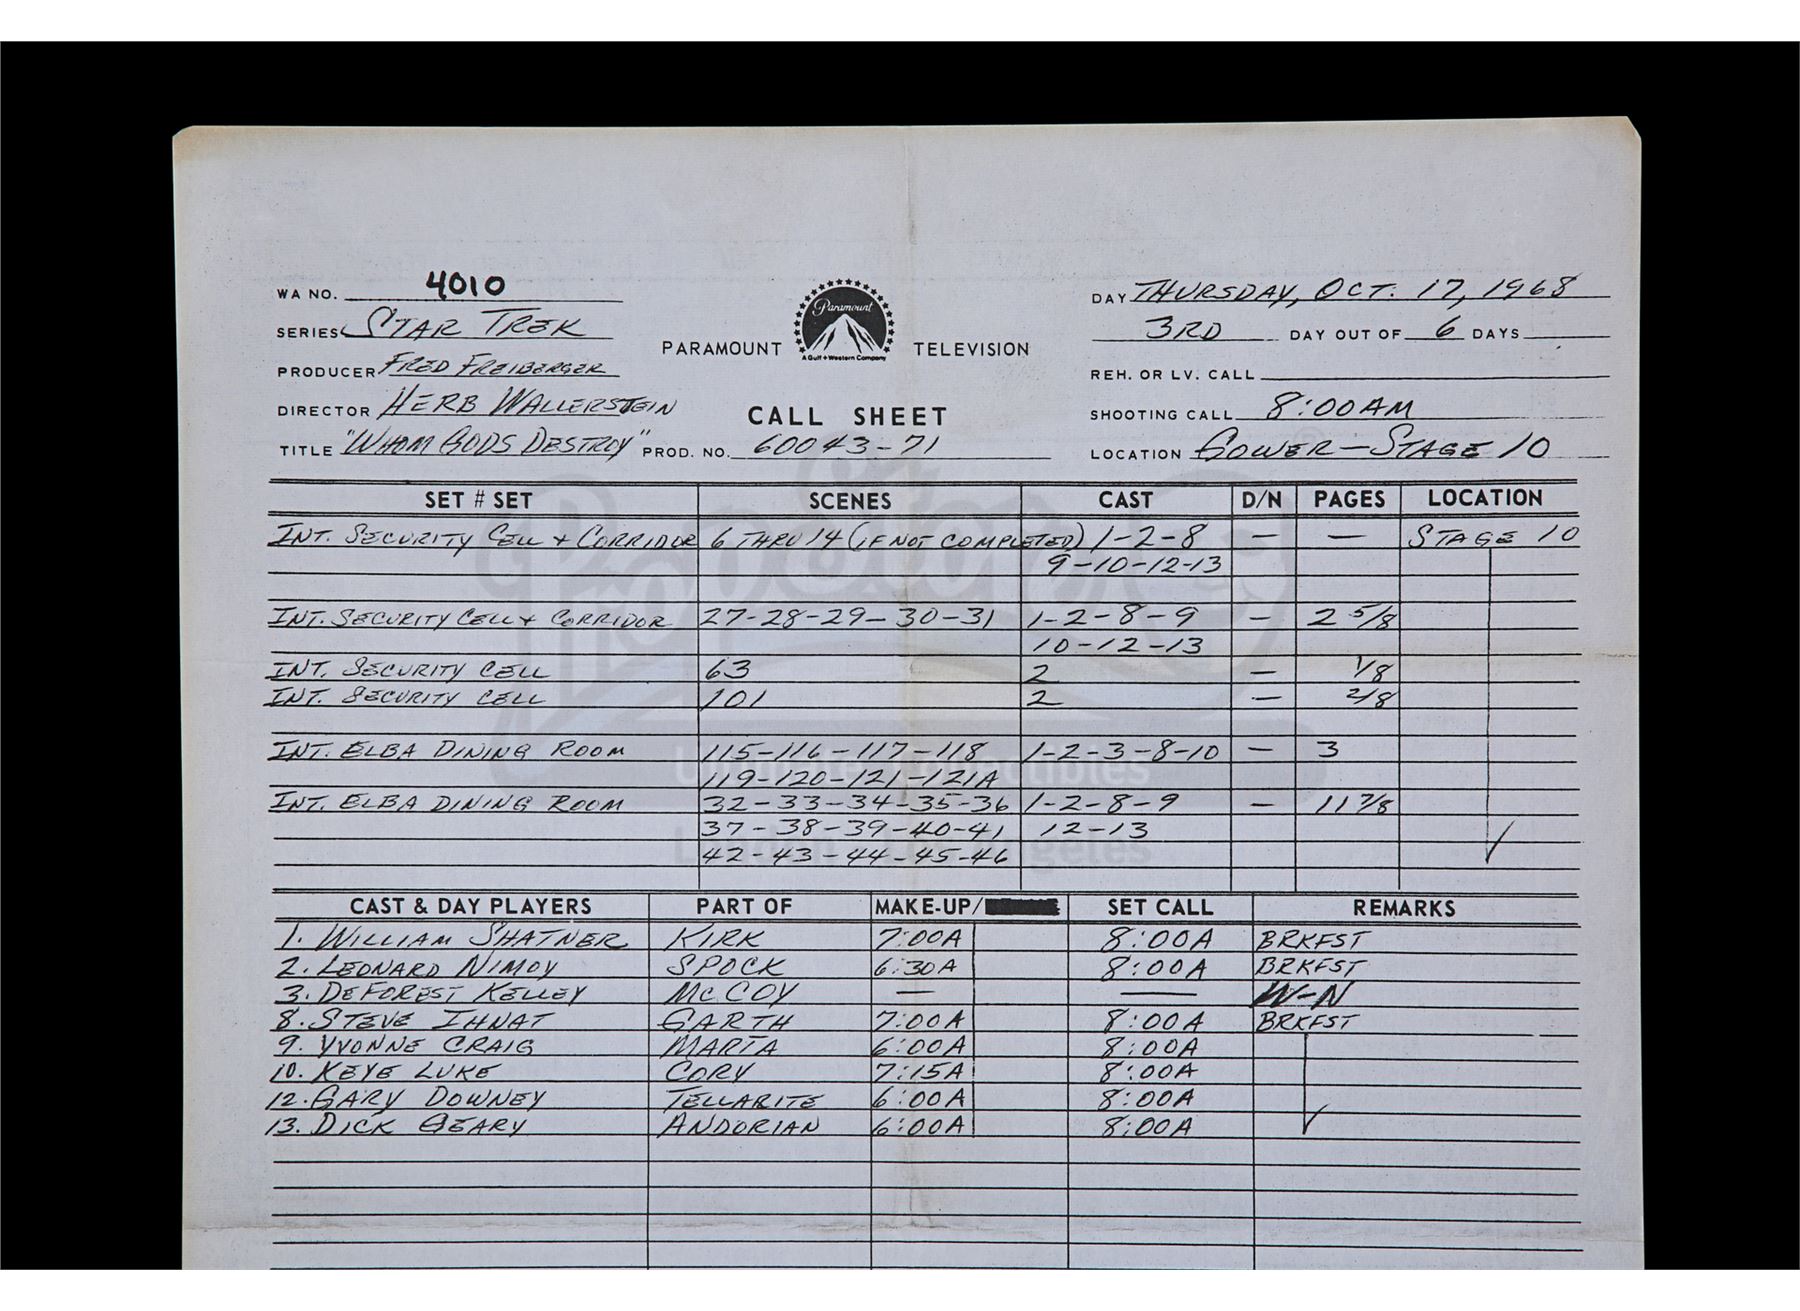 WA NO. 4010
SERIES STAR TREK
PRODUCER FRED FREIBERGER
DIRECTOR HERB WALLERSTEIN
TITLE "WHOM GODS DESTROY" PROD. NO. 60043-71
Paramount
A Gulf+Western Company
PARAMOUNT TELEVISION
CALL SHEET
DAY THURSDAY, OCT. 17, 1968
3RD DAY OUT OF 6 DAYS
REH. OR LV. CALL
SHOOTING CALL 8:00AM
LOCATION GOWER-STAGE 10
SET # SET SCENES CAST D/N PAGES LOCATION
INT. SECURITY CELL + CORRIDOR 6 THRU 14 (IF NOT COMPLETED) 1-2-8 — — STAGE 10
9-10-12-13
INT. SECURITY CELL + CORRIDOR 27-28-29-30-31 1-2-8-9 — 2 5/8
10-12-13
INT. SECURITY CELL 63 2 — 1/8
INT. SECURITY CELL 101 2 — 2/8
INT. ELBA DINING ROOM 115-116-117-118 1-2-3-8-10 — 3
119-120-121-121A
INT. ELBA DINING ROOM 32-33-34-35-36 1-2-8-9 — 11 7/8
37-38-39-40-41 12-13
42-43-44-45-46
CAST & DAY PLAYERS PART OF MAKE-UP/ SET CALL REMARKS
1. WILLIAM SHATNER KIRK 7:00A 8:00A BRKFST
2. LEONARD NIMOY SPOCK 6:30A 8:00A BRKFST
3. DEFOREST KELLEY MCCOY — — W-N
8. STEVE IHNAT GARTH 7:00A 8:00A BRKFST
9. YVONNE CRAIG MARTA 6:00A 8:00A
10. KEYE LUKE CORY 7:15A 8:00A
12. GARY DOWNEY TELLARITE 6:00A 8:00A
13. DICK GEARY ANDORIAN 6:00A 8:00A
Propstore
Ultimate Collectibles
London Los Angeles